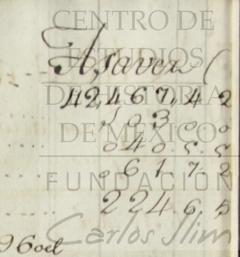 CENTRO DE
ESTUDIOS
DE HISTORIA
DE MÉXICO
FUNDACIÓN
Carlos Slim
A Saver (
42,467,,4 2
103,, 0 0
040,, 5 5
061 7 2
224 6,, 5
960 od